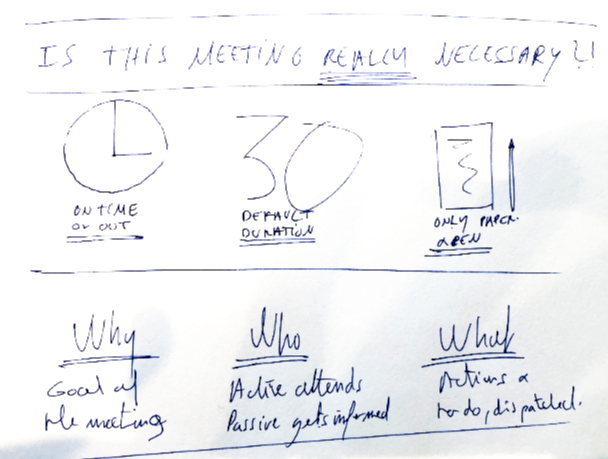 IS THIS MEETING REALLY NECESSARY?!
30
ON TIME
OR OUT
DEFAULT
DURATION
ONLY PAPER
& PEN
Why
Goal of
the meeting
Who
Active attends
Passive gets informed
What
Actions &
to do, dispatched.